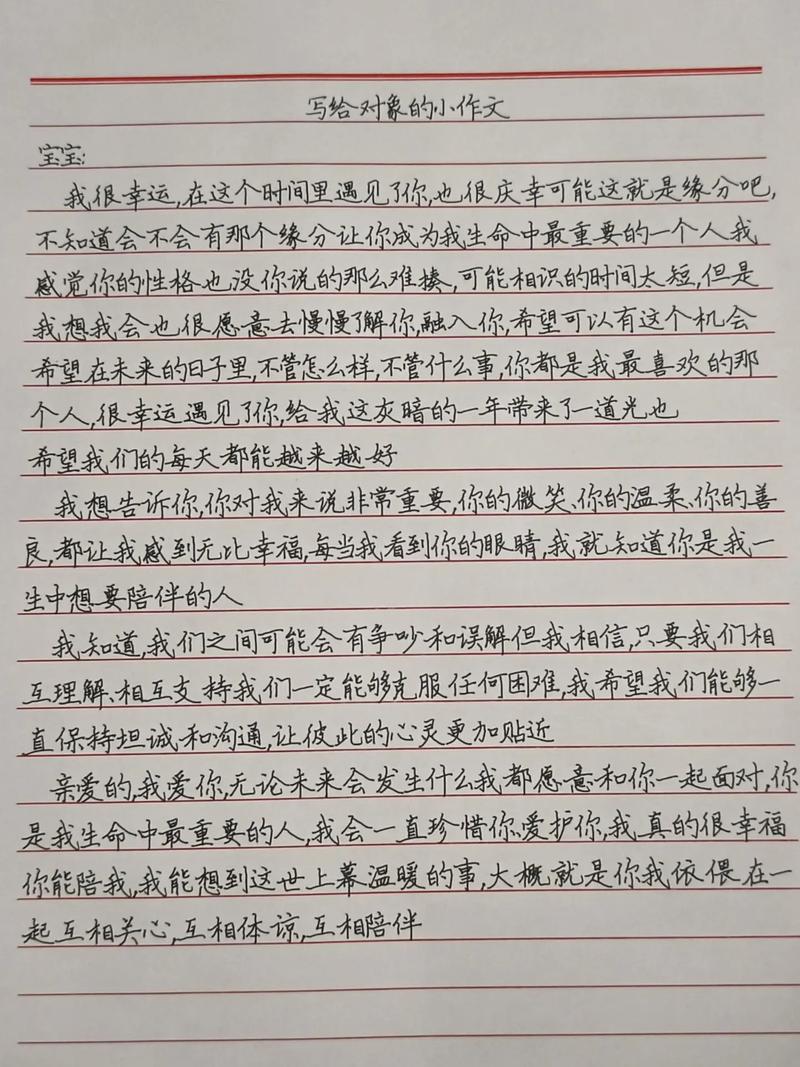 写给对象的小作文
宝宝:
我很幸运,在这个时间里遇见了你,也很庆幸可能这就是缘分吧,
不知道会不会有那个缘分让你成为我生命中最重要的一个人我
感觉你的性格也没你说的那么难揍,可能相识的时间太短,但是
我想我会也很愿意去慢慢了解你,融入你,希望可以有这个机会
希望在未来的日子里,不管怎么样,不管什么事,你都是我最喜欢的那
个人,很幸运遇见了你,给我这灰暗的一年带来了一道光也
希望我们的每天都能越来越好
我想告诉你,你对我来说非常重要,你的微笑、你的温柔、你的善
良,都让我感到无比幸福,每当我看到你的眼睛,我就知道你是我一
生中想要陪伴的人
我知道,我们之间可能会有争吵和误解但我相信,只要我们相
互理解、相互支持我们一定能够克服任何困难,我希望我们能够一
直保持坦诚和沟通,让彼此的心灵更加贴近
亲爱的,我爱你,无论未来会发生什么我都愿意和你一起面对,你
是我生命中最重要的人,我会一直珍惜你、爱护你,我真的很幸福
你能陪我,我能想到这世上幕温暖的事,大概就是你我依偎在一
起互相关心,互相体谅,互相陪伴